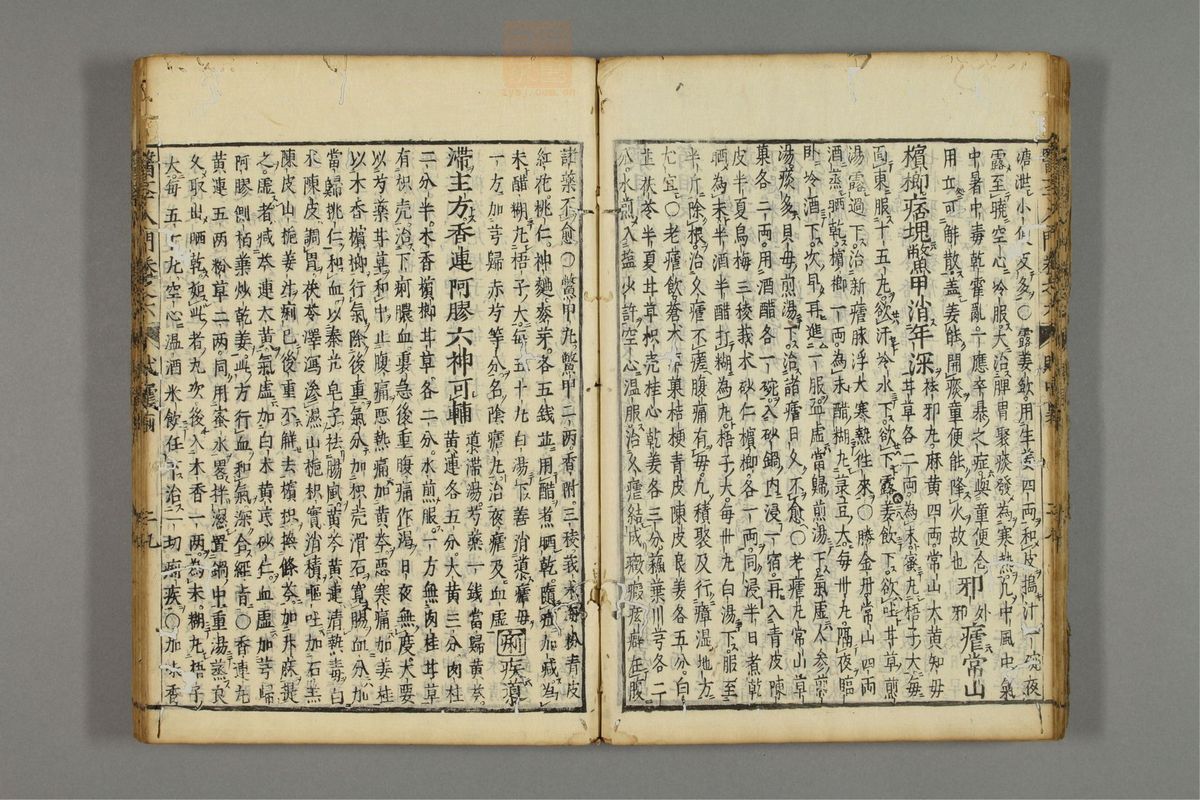 溏泄小便反多○露姜飮用生姜四両和皮搗汁一碗夜
露至曉空心冷服大治脾胃聚痰發為寒熱凢中風中氣
中暑中毒乾霍亂一應卒暴之症與童便合
用立可觧散盖姜能開痰童便能降火故也邪外瘧常山
檳榔痞塊鱉甲消年深
甘草各二両為末蜜丸梧子大每
面東服十五丸飲汗冷水下欲下露姜飮下欲吐甘草煎
湯露過下治新瘧脉浮大寒熱徃來○勝金丹常山四両
酒蒸晒乾檳榔一両為末醋糊丸菉豆大每卅丸隔夜臨
卧冷酒下次早再進一服血虛當歸煎湯下氣虛人参煎
湯痰多貝母煎湯下治諸瘧日久不愈○老瘧丸常山草
菓各二両用酒醋各一碗入砂鍋內浸一宿再入青皮陳
皮半夏烏梅三稜莪朮砂仁檳榔各一両同浸半日煮乾
晒為末半酒半醋打糊為丸梧子大每卅丸白湯下服至
半斤除根治久瘧不瘥腹痛有母凢積聚及行瘴湿地方
尤宜○老瘧飮蒼朮草菓桔梗青皮陳皮良姜各五分白
芷茯苓半夏甘草枳壳桂心乾姜各三分蘓葉川芎各二
八水煎入塩少許空心温服治久瘧結成癥瘕痃癖在腹
諸藥不愈○鱉甲丸鱉甲二両香附三稜莪朮海粉青皮
紅花桃仁神麯麥芽各五錢並用醋煮晒乾隨症加減為
末醋糊丸梧子大每五十丸白湯下善消導瘧母
一方加芎歸赤芍等分名陰瘧丸治夜瘧及血虛痢疾導
滯主方香連阿膠六神可輔
導滯湯芍藥一錢當歸黄芩
黄連各五分大黄三分肉桂
二分半木香檳榔甘草各二分水煎服一方無肉桂甘草
有枳壳治下痢膿血裏急後重腹痛作渇日夜無度大要
以芍藥甘草和中止腹痛惡熱痛加黄芩惡寒痛加姜桂
以木香檳榔行氣除後重氣分加枳壳滑石寛腸血分加
當歸桃仁和血以秦艽皂子祛腸風黄芩黄連清熱毒白
朮陳皮調胃茯苓澤瀉滲濕山梔枳實消積嘔吐加石羔
陳皮山梔姜汁痢已後重不觧去檳枳換條芩加升麻提
之虛者減芩連大黄氣虛加白朮黄芪砂仁血虛加芎歸
阿膠側柏藥炒乾姜此方行血和氣深合經旨○香連丸
黄連五両粉草二両同用蜜水畧拌濕置鍋中重湯蒸良
久取出晒乾如此者九次後入木香一両為末糊丸梧子
大每五十丸空心温酒米飮任下治一切痢疾○加味香